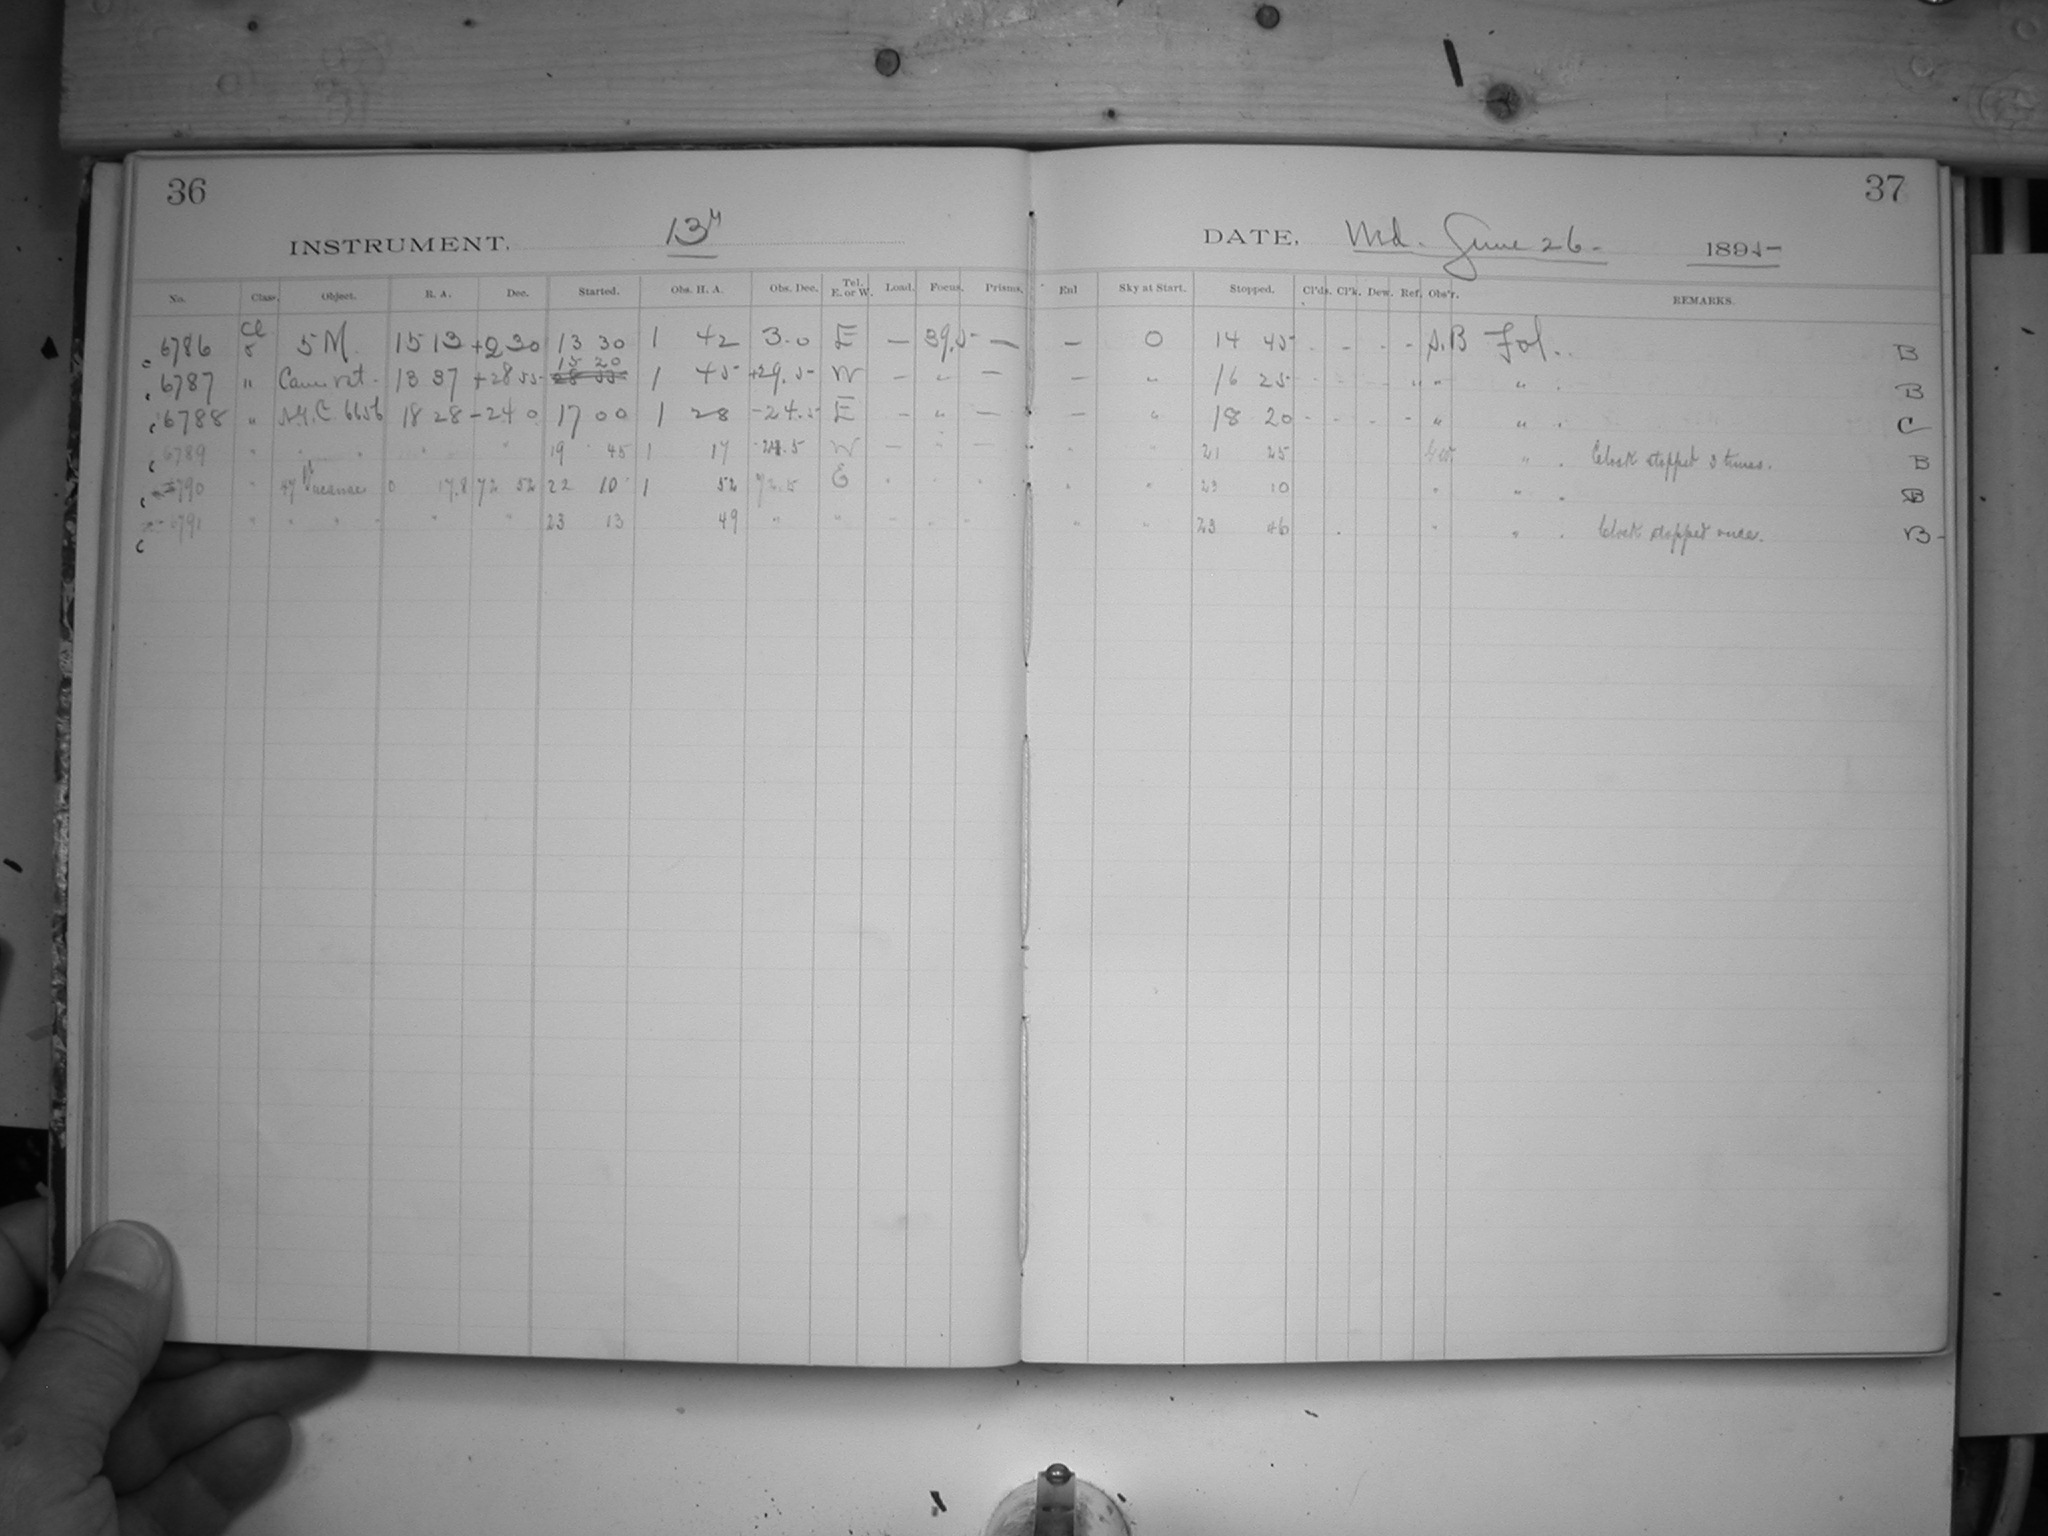 36
37
INSTRUMENT. 13"
DATE, Wd. June 26 - 1895
No. Class. Object. R. A. Dec. Started. Obs. H. A. Obs. Dec. Tel. E. or W. Load. Focus. Prisms. Enl Sky at Start. Stopped. Cl'ds. Cl'k. Dew. Ref. Obs'r. REMARKS.
6786 Cl 8 5 M. 15 13 +2 30 13 30 1 42 3.0 E — 39.5 — — 0 14 45 - - - - S.B Fol. B
6787 " Can. Vet. 13 37 +28 55 15 20 1 45 +29.5 W — " — — " 16 25 " " B
6788 " 6656 18 28 -24 0 17 00 1 28 -24.5 E — " — — " 18 20 - - - - " " C
6789 " " " " 19 45 1 17 -24.5 W — " — " " 21 25 " Clock stopped 3 times. B
6790 " 47 0 17.8 72 52 22 10 1 52 72.5 E " " " " " 23 10 " " B
6791 " " " " " " 23 13 49 " " " " " " " 23 46 " " Clock stopped once. B